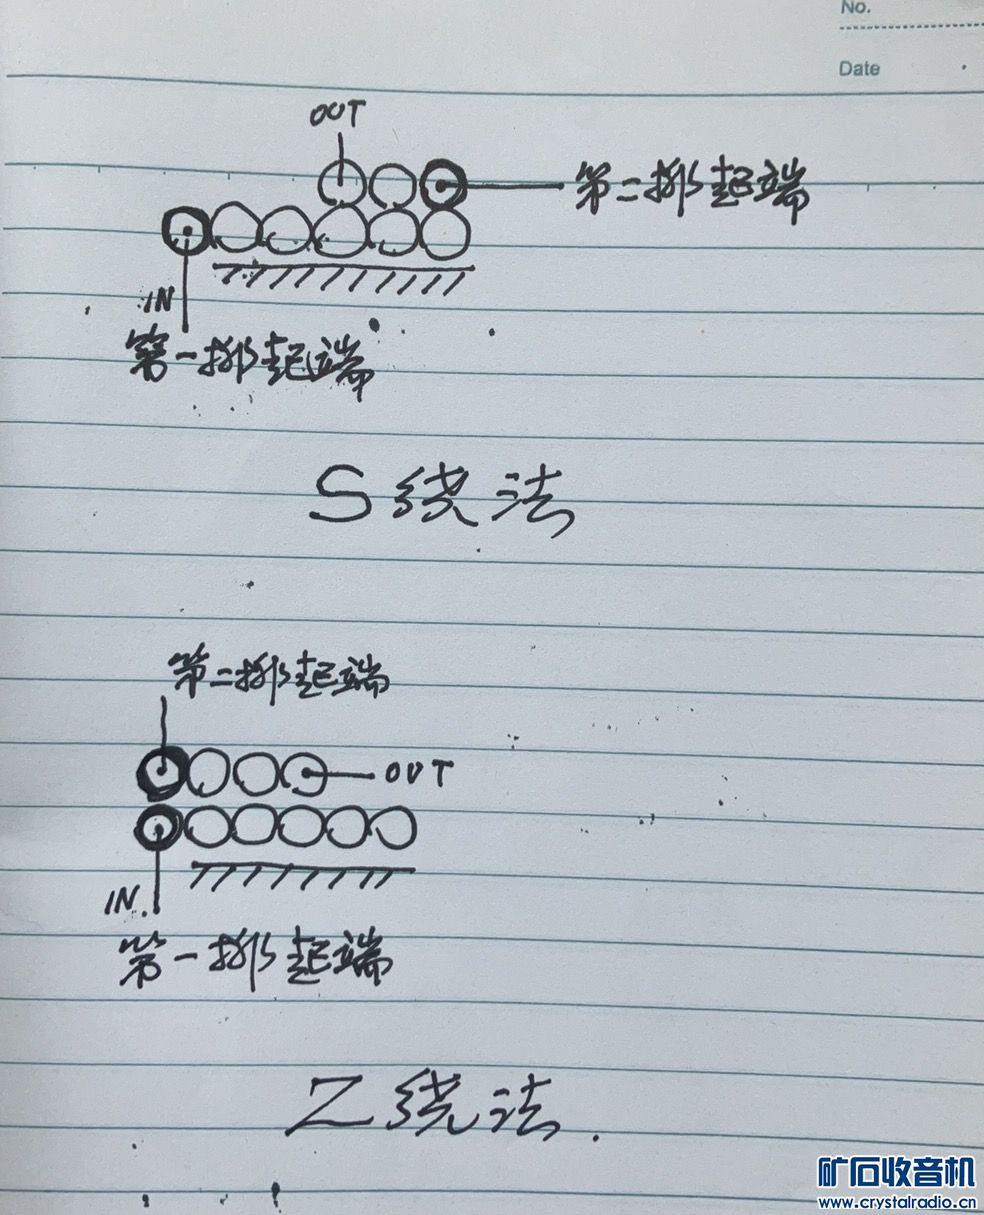 No.
Date
OUT
第二排起端
IN
第一排起端
S绕法
第二排起端
OUT
IN.
第一排起端
Z绕法.
矿石收音机
www.crystalradio.cn